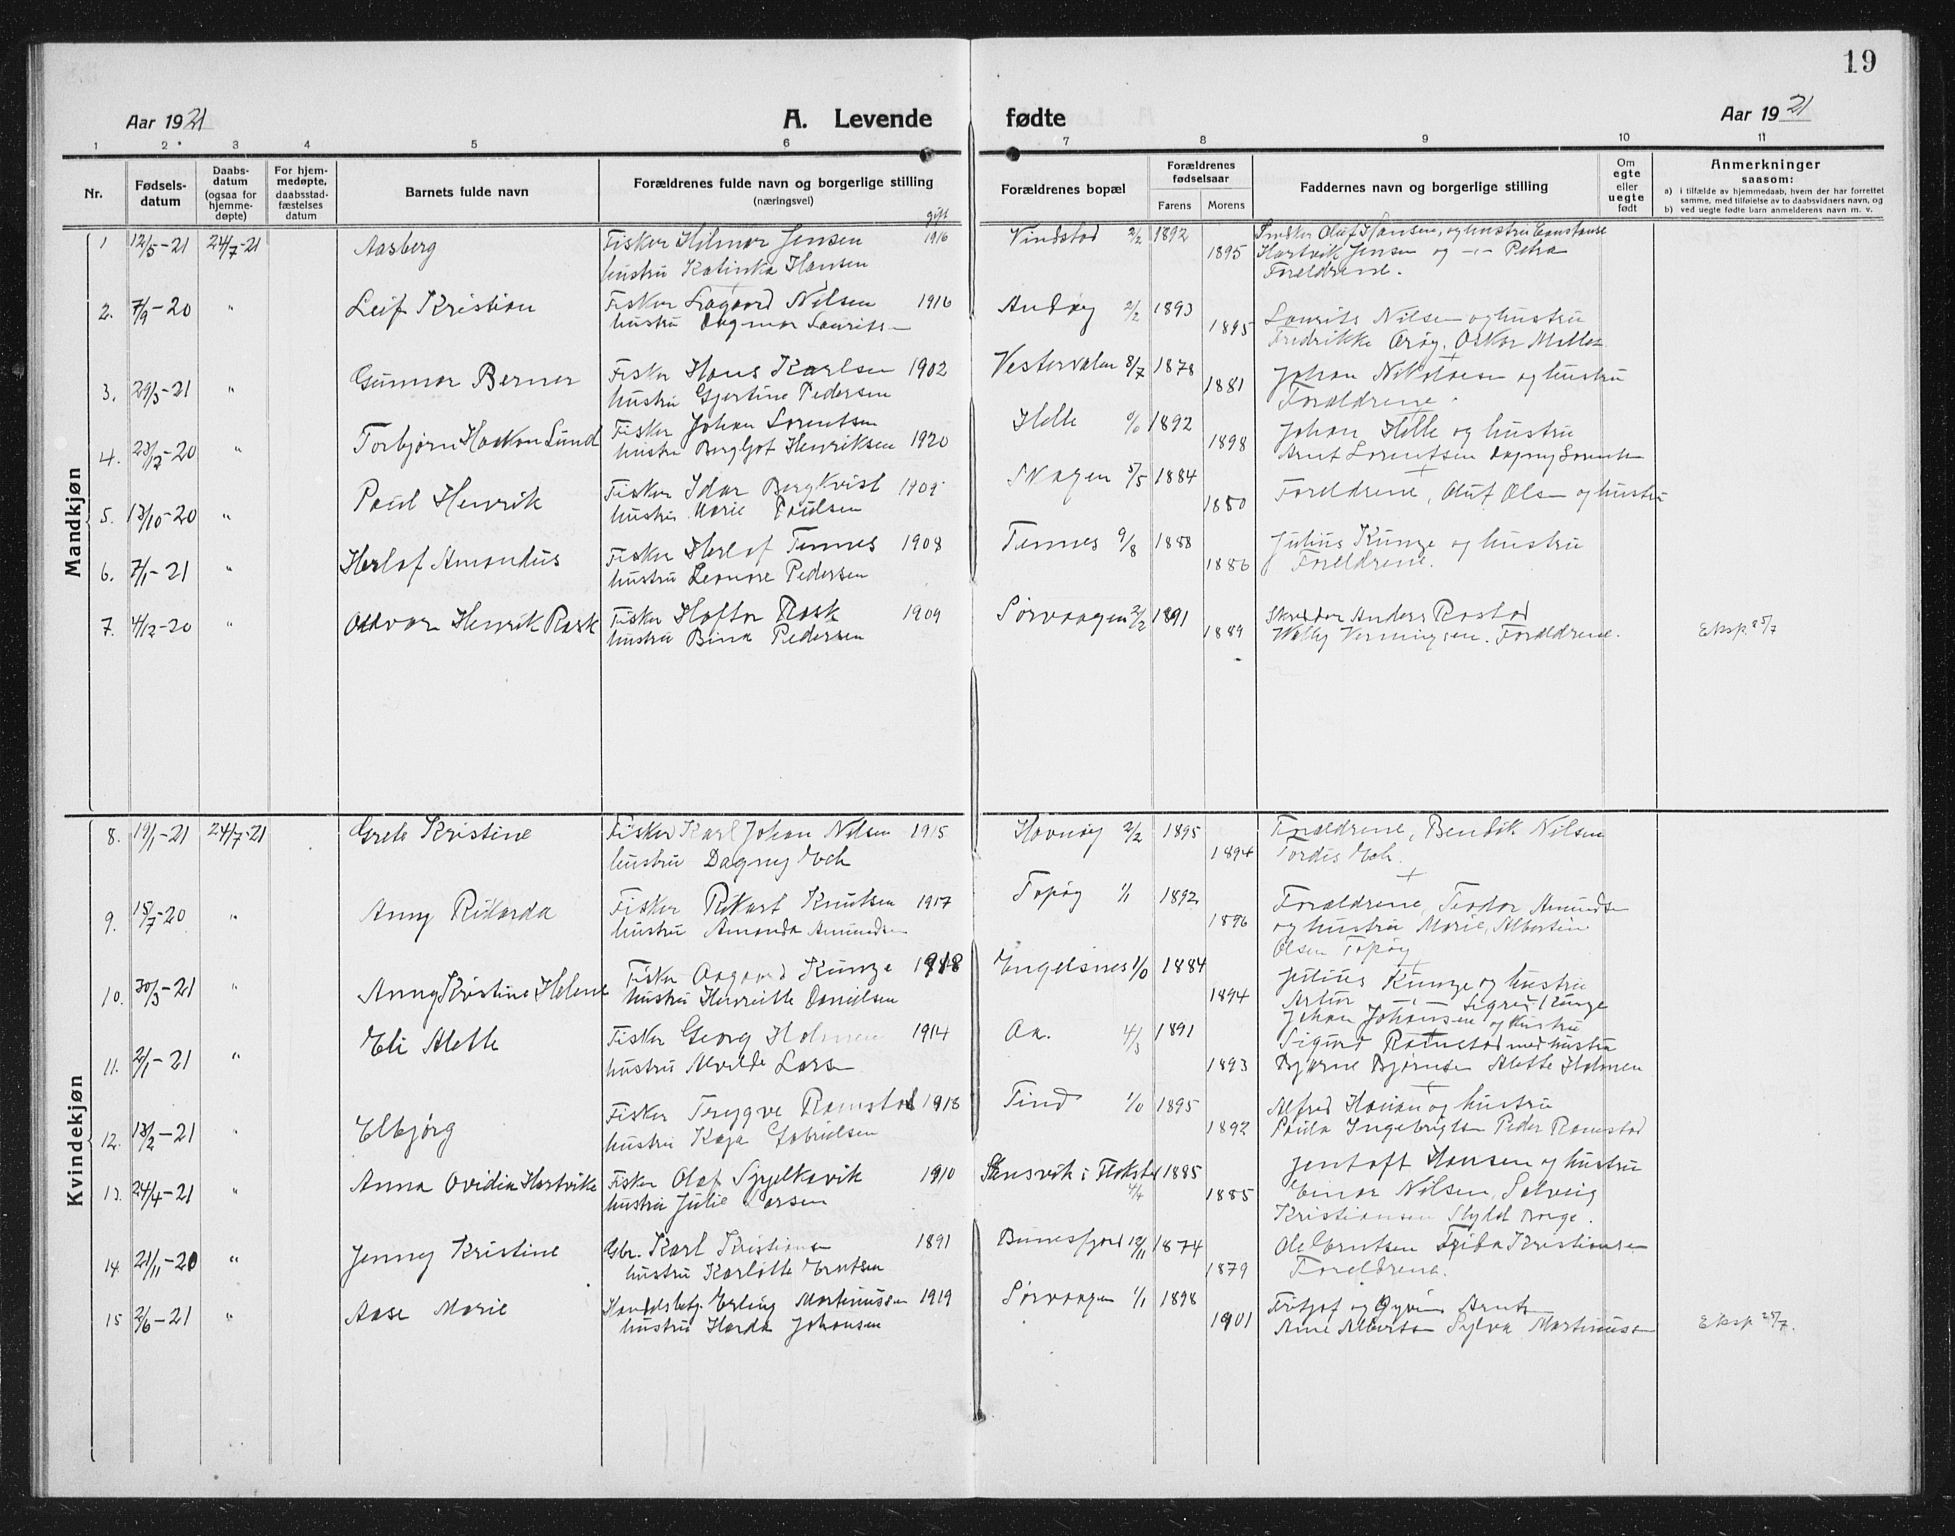 19
Aar 1921
A. Levende
fødte
Aar 1921
1 2 3 4 5 6 7 8 9 10 11
Nr.
Fødsels-
datum
Daabs-
datum
(ogsaa for
hjemme-
døpte)
For hjem-
medøpte,
daabsstad-
fæstelses
datum
Barnets fulde navn
Forældrenes fulde navn og borgerlige stilling
(næringsvei)
gift
Forældrenes bopæl
Forældrenes
fødselsaar
Farens Morens
Faddernes navn og borgerlige stilling
Om
egte
eller
uegte
født
Anmerkninger
saasom:
a) i tilfælde av hjemmedaab, hvem der har forrettet
samme, med tilføielse av to daabsvidners navn, og
b) ved uegte fødte barn anmelderens navn m. v.
Mandkjøn
1 12/5-21 24/7-21 Aasberg Fisker Hilmar Jensen 1916 Vindstad 2/2 1892 Oluf Hansen, og hustru
hustru Katinka Hansen 1895 Hartvik Jensen og -"- Petra
Foreldrene.
2. 7/9-20 " Leif Kristian Fisker Nilsen 1916 Andøy 2/2 1893
hustru Dagmar Laurits 1895 Laurits Nilsen og hustru
Fredrikke Oskar
3. 29/3-21 " Gunnar Berner Fisker Hans Karlsen 1902 8/7 1878
hustru Gjertine Pedersen 1881 Johan Nikolaisen og hustru
Forældrene.
4. 23/12-20 " Torbjørn Haakon Lund Fisker Johan Lorentsen Helle 0/0 1892
hustru Bergljot Henriksen 1920 1898 Johan Helle og hustru
Arnt Lorentsen Dagny
5. 13/10-20 " Paul Henrik Fisker Idar Bergkvist 1909 Skagen 5/5 1884 Foreldrene, Oluf Olsen og hustru
hustru Marie Paulsen 1880
6. 7/1-21 " Herlof Amandus Fisker Herlof Tennes 1908 Tennes 9/8 1888 Julius Kunze og hustru
hustru Leonore Pedersen 1886 Foreldrene.
7. 4/12-20 " Oddvar Henrik Rask Fisker Haftor Rask 1909 Sørvaagen 2/2 1891 Anders Rostad
hustru Bina Pedersen 1889 Forældrene. Eksp. 25/7
Kvindekjøn
8. 19/1-21 24/7-21 Grete Kristine Fisker Karl Johan Nilsen 1915 Havnøy 2/2 1895 Forældrene, Bendik Nilsen
hustru Dagny Eck 1894 Tordis Eck.
9. 15/7-20 " Anny Rikarda Fisker Rikart Knutsen 1917 Topøy 1/1 1892 Forældrene, Teodor Amundsen
hustru Amanda Amundsen 1896 og hustru Marie, Albertine
Olsen Topøy
10. 30/3-21 " Anny Kristine Helene Fisker Aagaard Kunze 1918 Engelsnes 1/0 1884 Julius Kunze og hustru
hustru Henriette Danielsen 1894 Artur Sigrid Kunze
Johan Johansen og hustru
11. 2/1-21 " Eli Alette Fisker Georg Holmen 1914 Aa. 4/3 1891 Sigurd Ramstad med hustru
hustru Alvilde Lars 1893 Bjarne Bjørnsen Alette Holmen
12. 13/2-21 " Elbjørg Fisker Trygve Ramstad 1918 Tind 1/0 1895 Alfred Hansen og hustru
hustru Kaja Gabrielsen 1892 Paula Ingebrigtsen Peder Ramstad
13. 24/4-21 " Anna Ovidia Hartvikke Fisker Olaf Spjelkavik 1910 i Flakstad 4/4 1885 Jentoft Hansen og hustru
hustru Julie Larsen 1885 Einar Nilsen, Solveig
Kristiansen
14. 21/11-20 " Jenny Kristine Gbr. Karl Kristiansen 1891 Bunesfjord 12/11 1874 Ole Frida Kristiansen
hustru Karlotte Erntsen 1879 Foreldrene.
15 2/6-21 " Aase Marie Handelsbetj. Erling Martinussen 1919 Sørvaagen 1/1 1898 og
hustru Harda Johansen 1901 Sylva Martinussen Eksp 25/7.